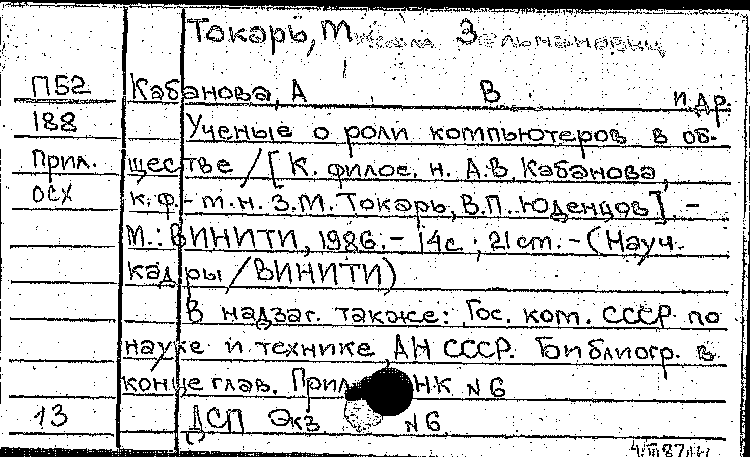 Токарь, М З
П62 Кабанова, А В и др.
188 Ученые о роли компьютеров в об-
Прил. ществе / [К. филос. н. А.В. Кабанова,
ОСХ к.ф.-т.н. З.М. Токарь, В.П. Юденцов]. -
М.: ВИНИТИ, 1986. - 14с ; 21см. - (Науч.
кадры / ВИНИТИ)
В надзаг. также: Гос. ком. СССР по
науке и технике, АН СССР. Библиогр. в
конце глав. Прил. НК N 6
13 ДСП Экз N 6